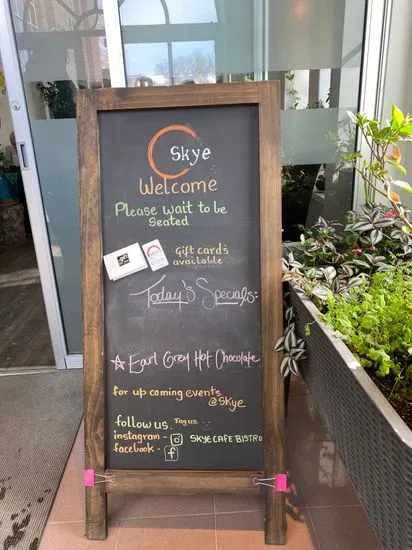 Skye
Welcome
Please wait to be
Seated
Gift cards
available
Today's Specials:
☆ Earl Grey Hot Chocolate
for up coming events
@Skye
follow us. Tag us.
instagram - SKYECAFEBISTRO
facebook - f